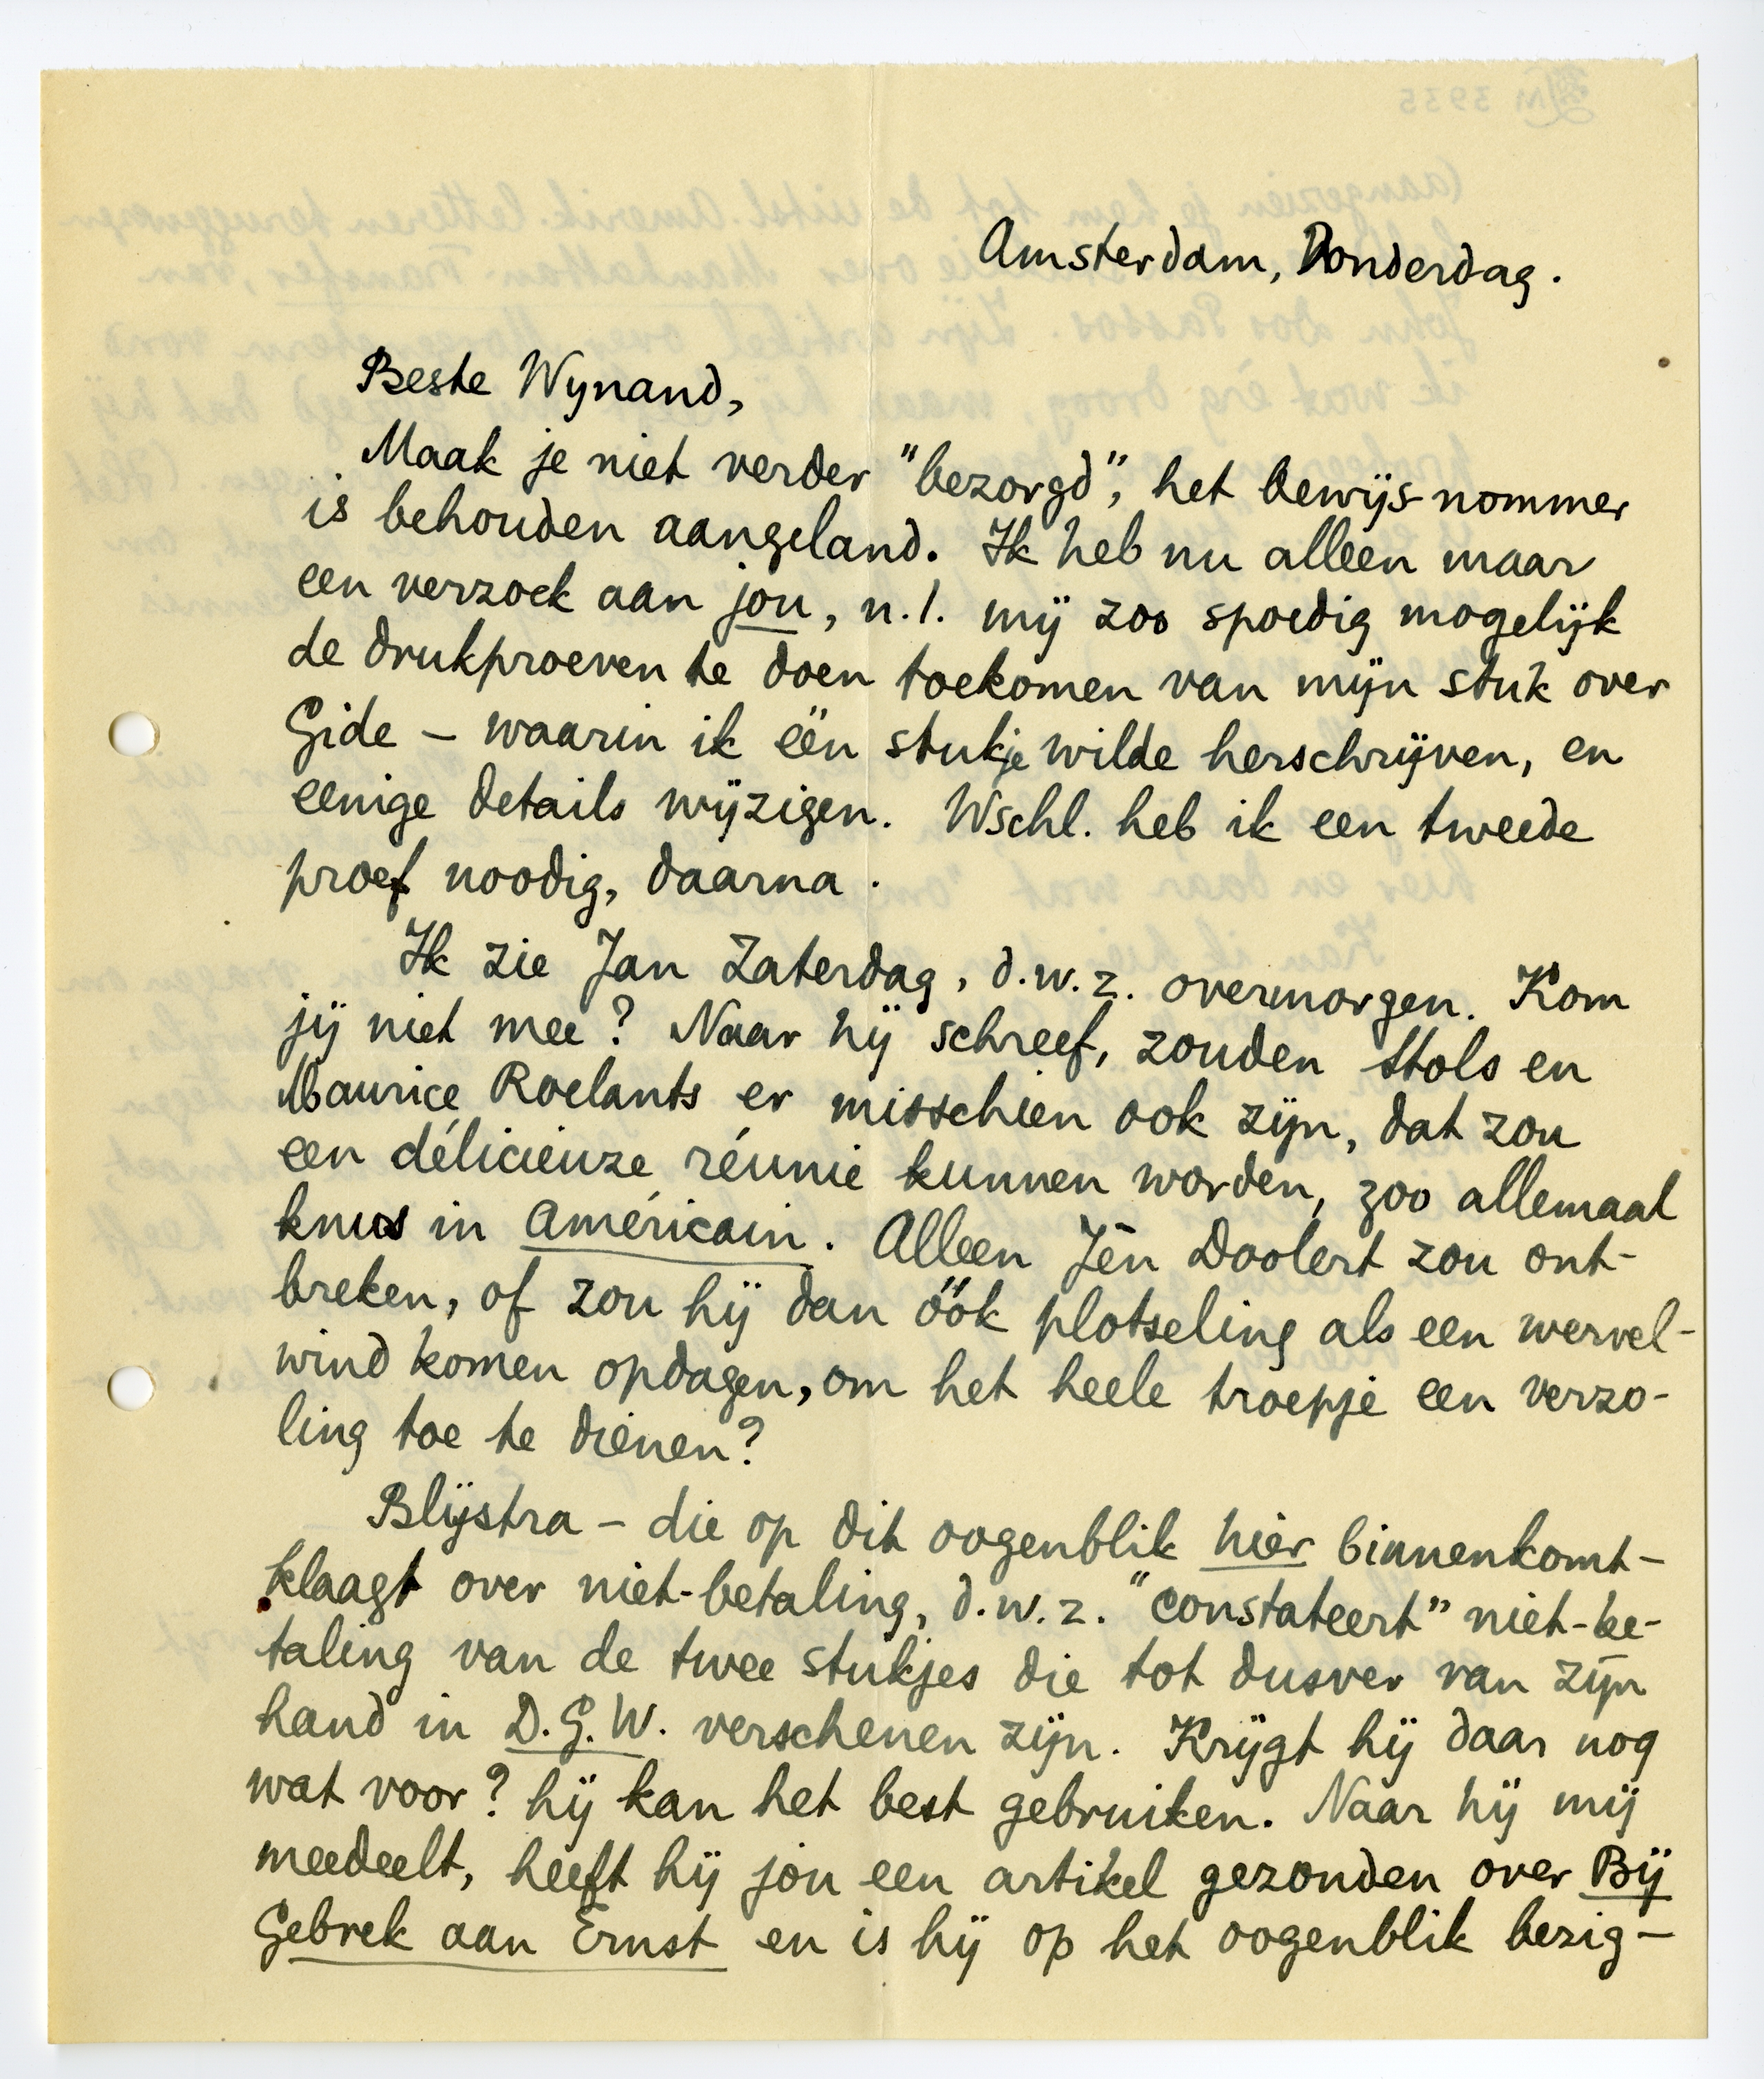 Amsterdam, Donderdag.
Beste Wynand,
Maak je niet verder "bezorgd", het bewijs-nommer
is behouden aangeland. Ik heb nu alleen maar
een verzoek aan jou, n.l. mij zoo spoedig mogelijk
de drukproeven te doen toekomen van mijn stuk over
Gide – waarin ik één stukje wilde herschrijven, en
eenige details wijzigen. Wschl. heb ik een tweede
proef noodig, daarna.
Ik zie Jan Zaterdag, d.w.z. overmorgen. Kom
jij niet mee? Naar hij schreef, zouden Stols en
Maurice Roelants er misschien ook zijn, dat zou
een délicieuze réunie kunnen worden, zoo allemaal
knus in Américain. Alleen Jèn Doolert zou ont-
breken, of zou hij dan óók plotseling als een wervel-
wind komen opdagen, om het heele troepje een verzo-
ling toe te dienen?
Blijstra – die op dit oogenblik hier binnenkomt –
klaagt over niet-betaling, d.w.z. "constateert" niet-be-
taling van de twee stukjes die tot dusver van zijn
hand in D.G.W. verschenen zijn. Krijgt hij daar nog
wat voor? hij kan het best gebruiken. Naar hij mij
meedeelt, heeft hij jou een artikel gezonden over Bij
Gebrek aan Ernst en is hij op het oogenblik bezig –